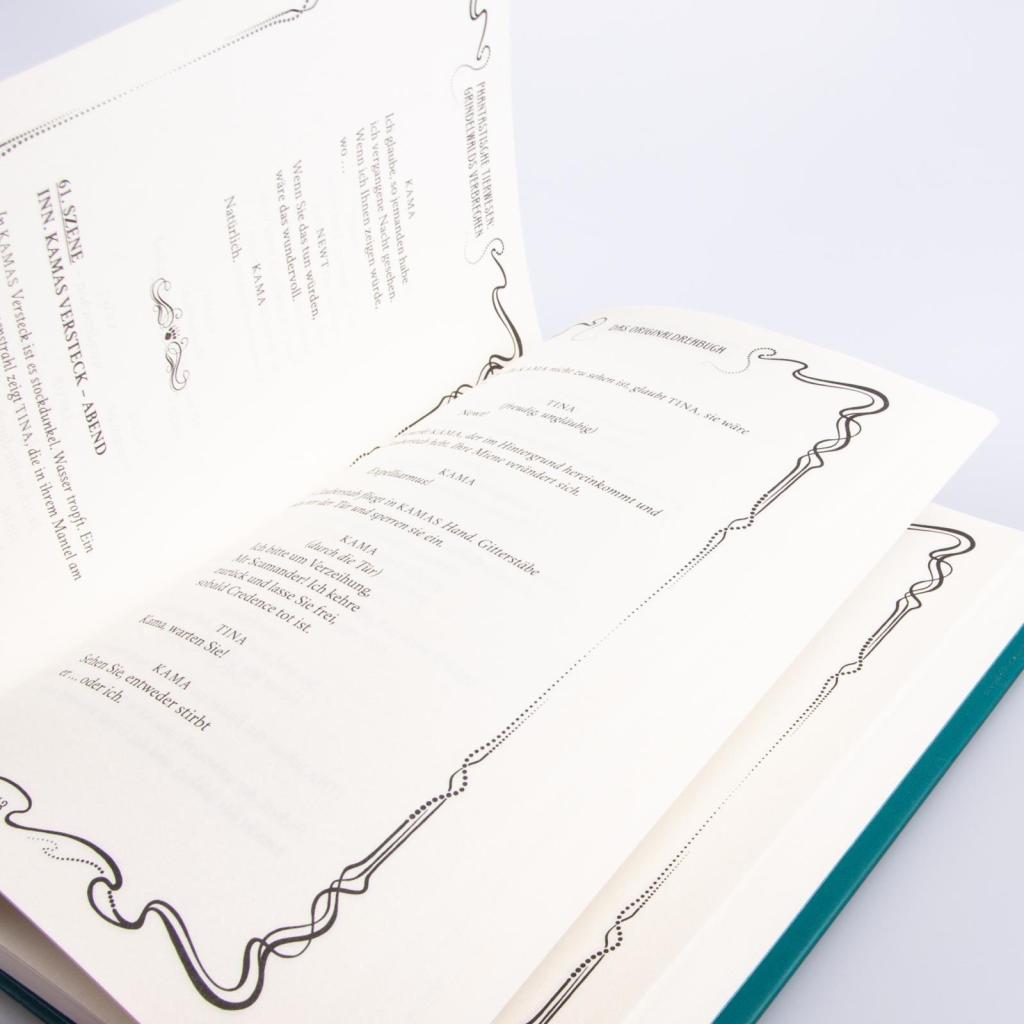 PHANTASTISCHE TIERWESEN:
GRINDELWALDS VERBRECHEN
KAMA
Ich glaube, so jemanden habe
ich vergangene Nacht gesehen.
Wenn ich Ihnen zeigen würde,
wo …
NEWT
Wenn Sie das tun würden,
wäre das wundervoll.
KAMA
Natürlich.
61. SZENE
INN. KAMAS VERSTECK – ABEND
In KAMAS Versteck ist es stockdunkel. Wasser tropft. Ein
zeigt TINA, die in ihrem Mantel am
DAS ORIGINALDREHBUCH
KAMA nicht zu sehen ist, glaubt TINA, sie wäre
TINA
(freudig, ungläubig)
Newt!
KAMA, der im Hintergrund hereinkommt und
hebt. Ihre Miene verändert sich.
KAMA
Expelliarmus!
fliegt in KAMAS Hand. Gitterstäbe
vor der Tür und sperren sie ein.
KAMA
(durch die Tür)
Ich bitte um Verzeihung,
Mr Scamander! Ich kehre
zurück und lasse Sie frei,
sobald Credence tot ist.
TINA
Kama, warten Sie!
KAMA
Sehen Sie, entweder stirbt
er … oder ich.